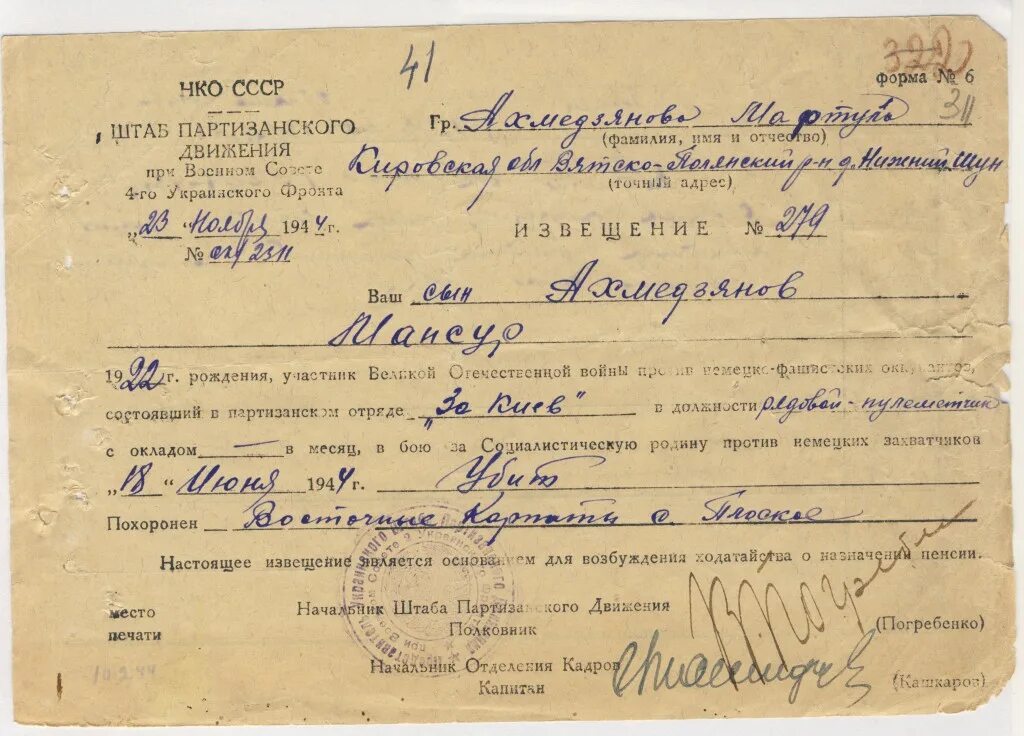 41
322
НКО СССР
форма № 6
311
ШТАБ ПАРТИЗАНСКОГО
ДВИЖЕНИЯ
при Военном Совете
4-го Украинского Фронта
„23 " Ноября 1944 г.
№ 2311
Гр. Ахмедзянова
(фамилия, имя и отчество)
Кировская обл Вятско-Полянский р-н д. Нижний Шун
(точный адрес)
ИЗВЕЩЕНИЕ № 279
Ваш сын Ахмедзянов
Мансур
1922 г. рождения, участник Великой Отечественной войны против немецко-фашистских оккупантов,
состоявший в партизанском отряде „За Киев" в должности рядовой-пулеметчик
с окладом — в месяц, в бою за Социалистическую родину против немецких захватчиков
„18 " Июня 1944 г. Убит
Похоронен Восточные Карпаты с. Плоское
Настоящее извещение является основанием для возбуждения ходатайства о назначении пенсии.
место
печати
Начальник Штаба Партизанского Движения
Полковник
(Погребенко)
Начальник Отделения Кадров
Капитан
(Кашкаров)